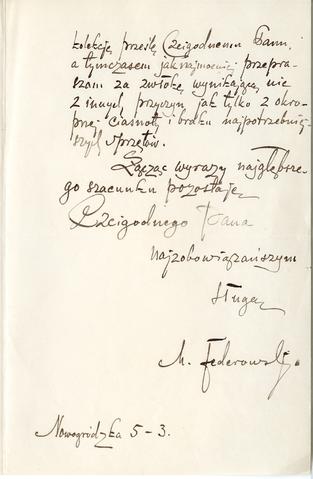 kolekcję prześlę Czcigodnemu Panu,
a tymczasem jak najmocniej przepra-
szam za zwłokę, wynikającą nie
z innych przyczyn, jak tylko z okro-
pnej ciasnoty i braku najpotrzebniej-
szych sprzętów.
Łącząc wyrazy najgłębsze-
go szacunku pozostaję
Czcigodnego Pana
najzobowiązańszym
sługą
M. Federowski.
Nowogródzka 5-3.